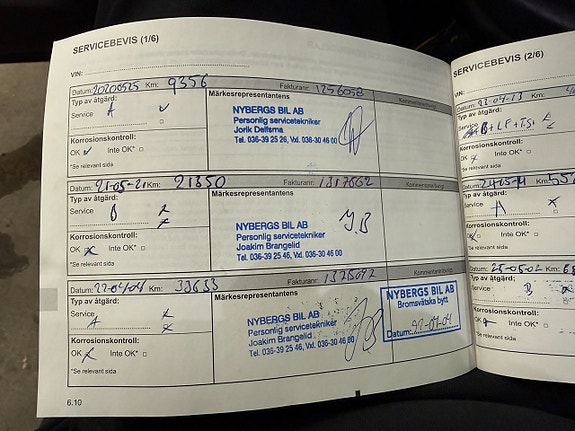 SERVICEBEVIS (1/6)
VIN:
Datum: 20200525 Km: 9356 Fakturanr: 1256058
Typ av åtgärd:
Service A
Märkesrepresentantens
Kommentar/övrigt
NYBERGS BIL AB
Personlig servicetekniker
Jorik Delfsma
Tel. 036-39 25 26, Vxl. 036-30 46 00
Korrosionskontroll:
OK Inte OK*
*Se relevant sida
Datum: 21-05-21 Km: 21350 Fakturanr: 1317662
Typ av åtgärd:
Service B
Märkesrepresentantens
Kommentar/övrigt
NYBERGS BIL AB
Personlig servicetekniker
Joakim Brangelid
Tel. 036-39 25 46, Vxl. 036-30 46 00
J.B
Korrosionskontroll:
OK Inte OK*
*Se relevant sida
Datum: 22-04/04 Km: 33633 Fakturanr:
Typ av åtgärd:
Service A
Märkesrepresentantens
Kommentar/övrigt
NYBERGS BIL AB
Personlig servicetekniker
Joakim Brangelid
Tel. 036-39 25 46, Vxl. 036-30 46 00
NYBERGS BIL AB
Bromsvätska bytt
Datum:
Korrosionskontroll:
OK Inte OK*
*Se relevant sida
6.10
SERVICEBEVIS (2/6)
VIN:
Typ av åtgärd:
Service
Korrosionskontroll:
OK Inte OK*
*Se relevant sida
Typ av åtgärd:
Service A
Korrosionskontroll:
OK Inte OK*
*Se relevant sida
Datum: 25-05-02 Km:
Typ av åtgärd:
Service B
Korrosionskontroll:
OK Inte OK*
*Se relevant sida